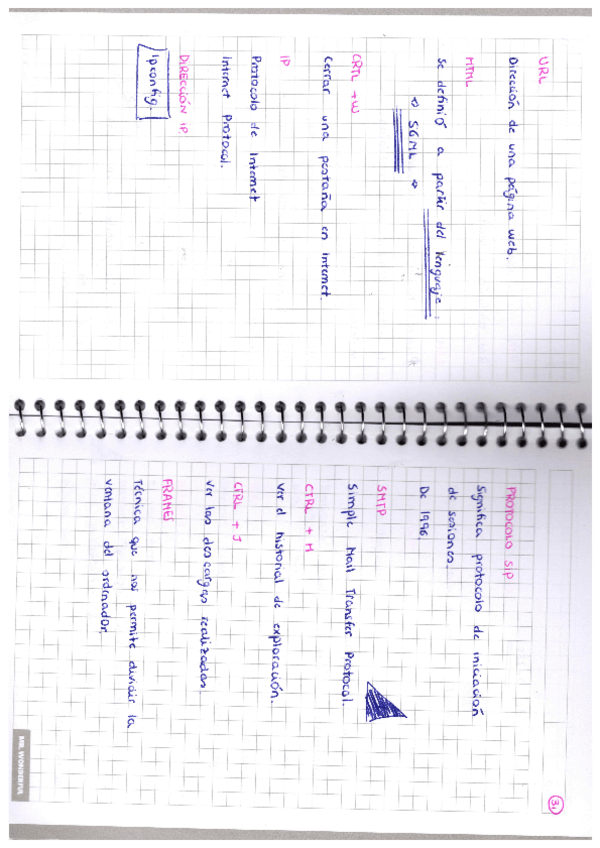 URL
Dirección de una página web.
HTML
Se definió a partir del lenguaje:
⇒ SGML ⇒
CRTL + W
Cerrar una pestaña en internet.
IP
Protocolo de Internet
Internet Protocol.
DIRECCIÓN IP
Ipconfig.
3.
PROTOCOLO SIP
Significa protocolo de iniciación
de sesiones.
De 1996.
SMTP
Simple Mail Transfer Protocol.
CTRL + H
Ver el historial de exploración.
CTRL + J
Ver las descargas realizadas.
FRAMES
Técnica que nos permite dividir la
ventana del ordenador.
MR. WONDERFUL